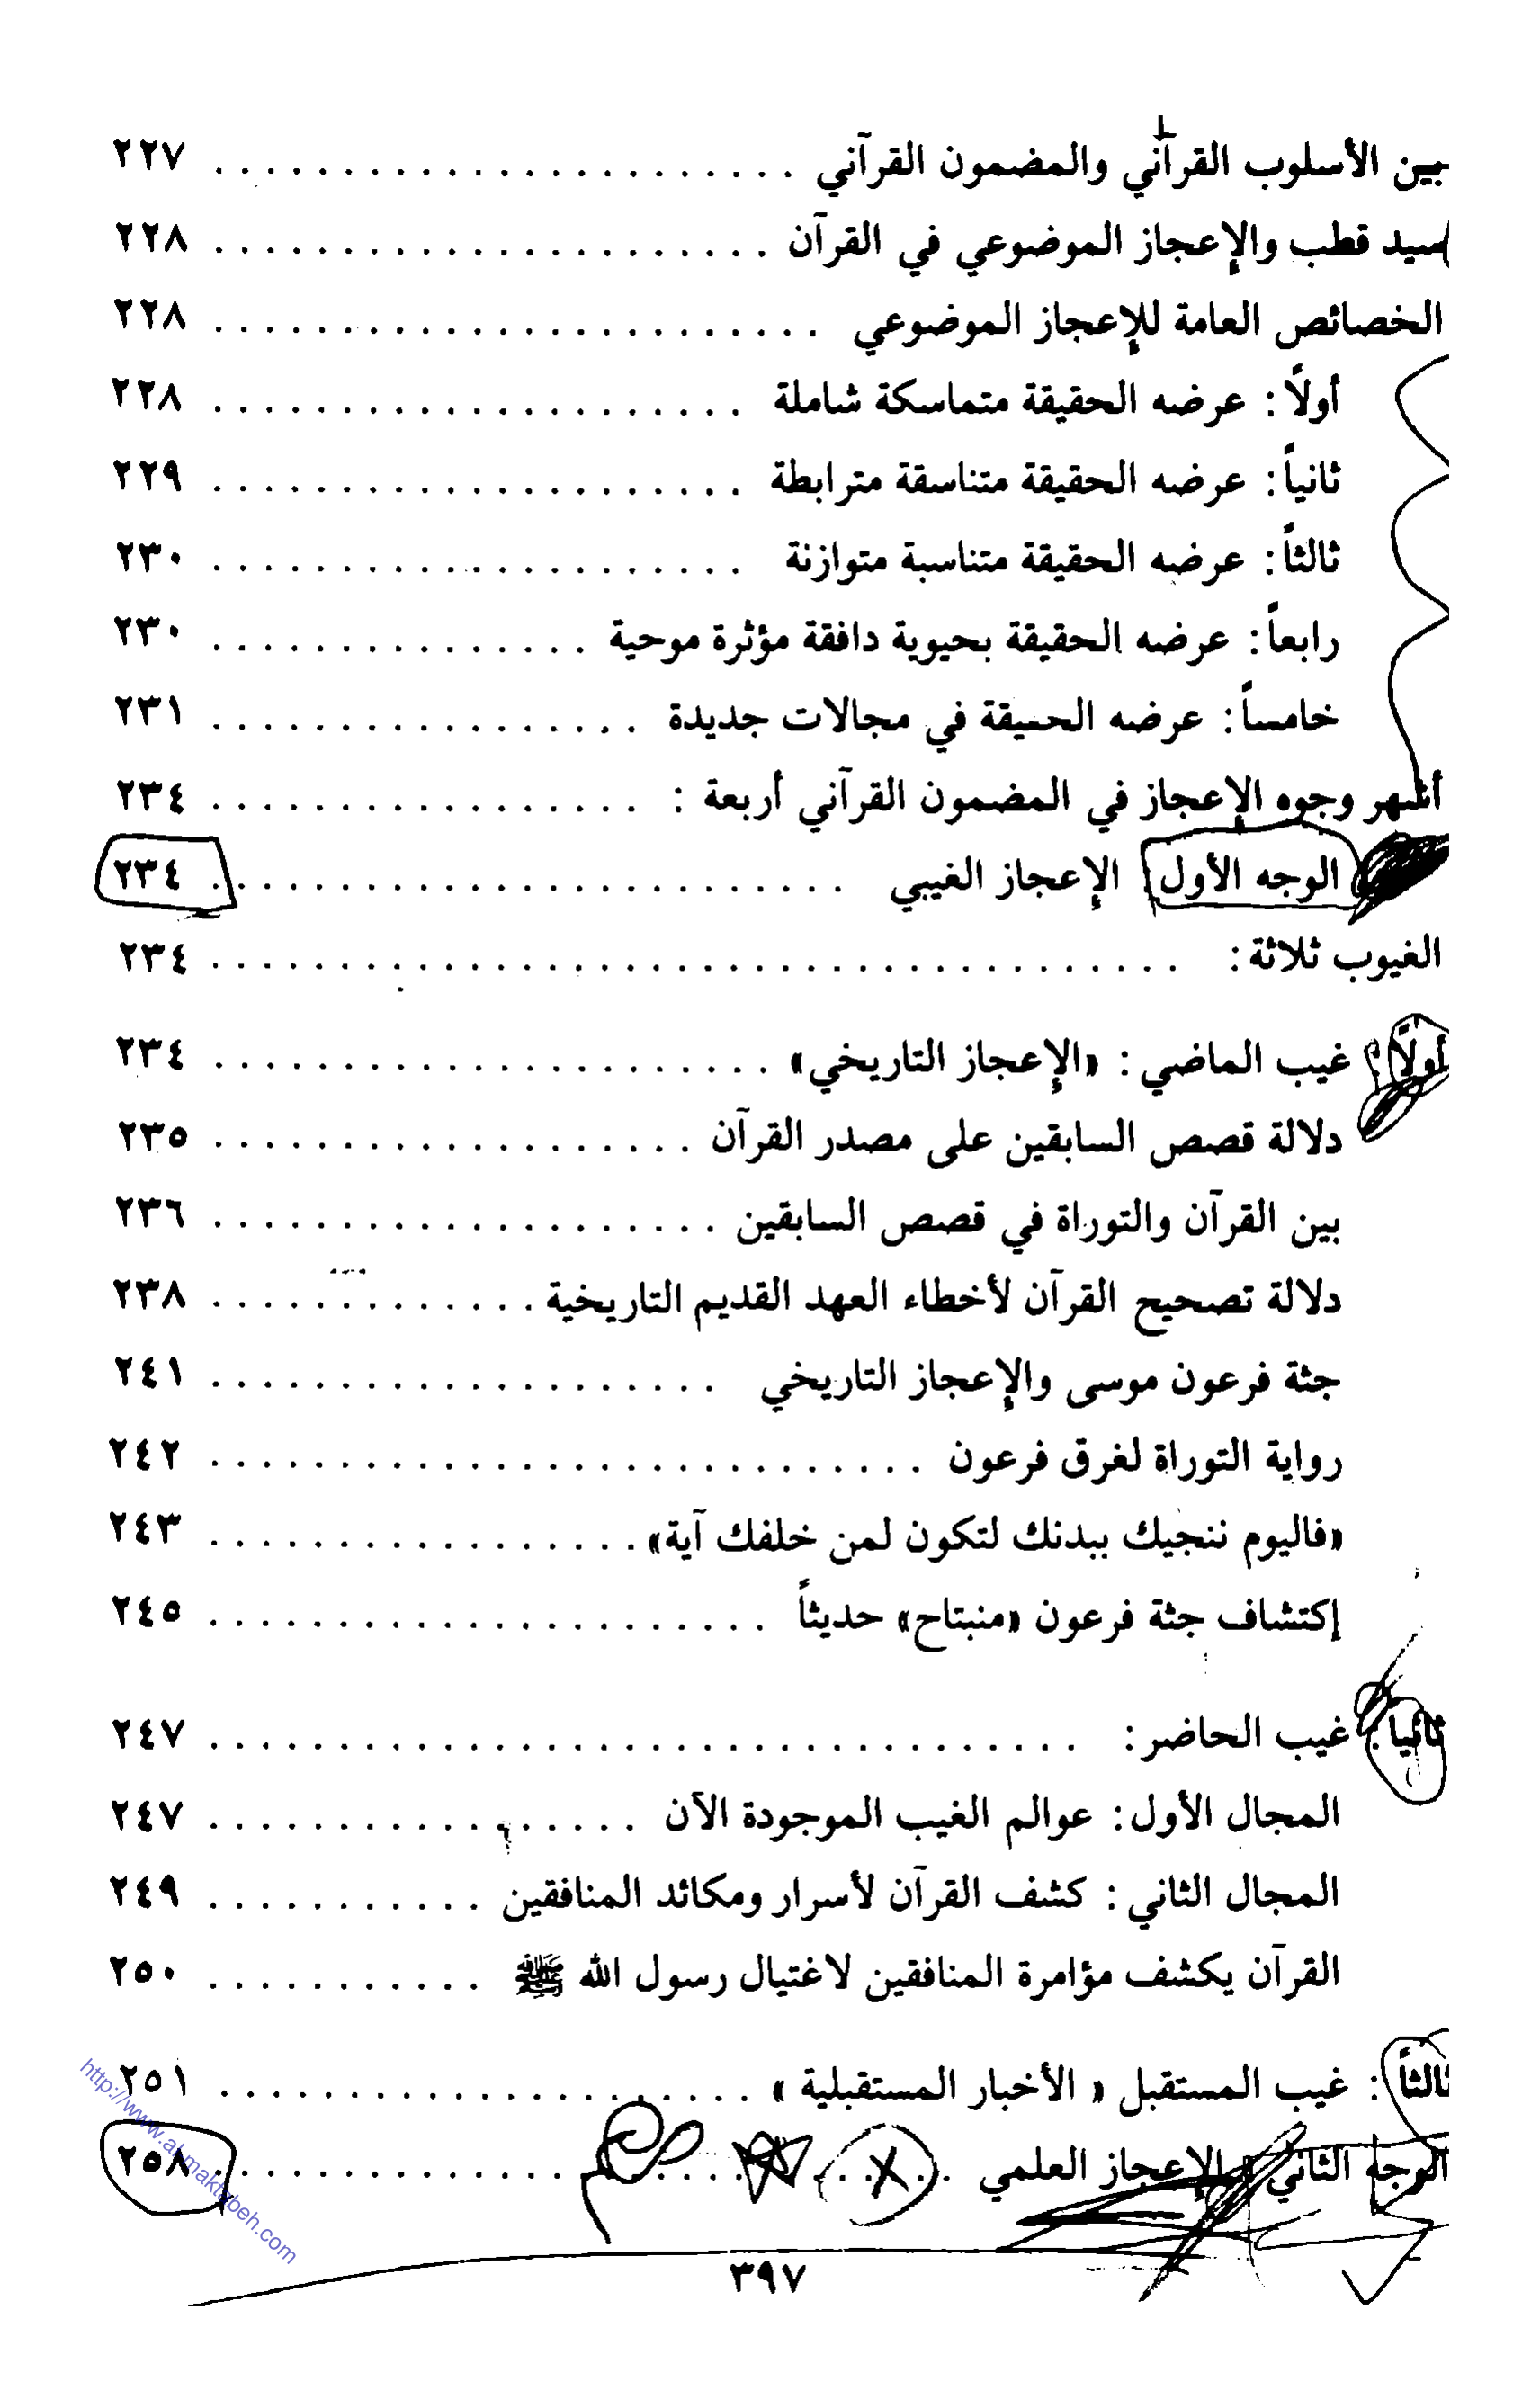 بين الأسلوب القرآني والمضمون القرآني . . . . . . . . . . . . . . . . . . . . . . . ٢٢٧
سيد قطب والإعجاز الموضوعي في القرآن . . . . . . . . . . . . . . . . . . . . . . ٢٢٨
الخصائص العامة للإعجاز الموضوعي . . . . . . . . . . . . . . . . . . . . . . . . ٢٢٨
أولاً: عرضه الحقيقة متماسكة شاملة . . . . . . . . . . . . . . . . . . . . . ٢٢٨
ثانياً: عرضه الحقيقة متناسقة مترابطة . . . . . . . . . . . . . . . . . . . . . ٢٢٩
ثالثاً: عرضه الحقيقة متناسبة متوازنة . . . . . . . . . . . . . . . . . . . . . ٢٣٠
رابعاً: عرضه الحقيقة بحيوية دافقة مؤثرة موحية . . . . . . . . . . . . . . . ٢٣٠
خامساً: عرضه الحقيقة في مجالات جديدة . . . . . . . . . . . . . . . . . ٢٣١
أشهر وجوه الإعجاز في المضمون القرآني أربعة : . . . . . . . . . . . . . . . . . ٢٣٤
الوجه الأول: الإعجاز الغيبي . . . . . . . . . . . . . . . . . . . . . . . . . ٢٣٤
الغيوب ثلاثة: . . . . . . . . . . . . . . . . . . . . . . . . . . . . . . . . . . . . . . ٢٣٤
أولاً: غيب الماضي: «الإعجاز التاريخي» . . . . . . . . . . . . . . . . . . . . . . ٢٣٤
دلالة قصص السابقين على مصدر القرآن . . . . . . . . . . . . . . . . . . . ٢٣٥
بين القرآن والتوراة في قصص السابقين . . . . . . . . . . . . . . . . . . . . ٢٣٦
دلالة تصحيح القرآن لأخطاء العهد القديم التاريخية . . . . . . . . . . . . . ٢٣٨
جثة فرعون موسى والإعجاز التاريخي . . . . . . . . . . . . . . . . . . . . ٢٤١
رواية التوراة لغرق فرعون . . . . . . . . . . . . . . . . . . . . . . . . . . . . ٢٤٢
«فاليوم ننجيك ببدنك لتكون لمن خلفك آية» . . . . . . . . . . . . . . . . . ٢٤٣
إكتشاف جثة فرعون «منبتاح» حديثاً . . . . . . . . . . . . . . . . . . . . . . ٢٤٥
ثانياً: غيب الحاضر: . . . . . . . . . . . . . . . . . . . . . . . . . . . . . . . . . . ٢٤٧
المجال الأول: عوالم الغيب الموجودة الآن . . . . . . . . . . . . . . . . . ٢٤٧
المجال الثاني: كشف القرآن لأسرار ومكائد المنافقين . . . . . . . . . . . ٢٤٩
القرآن يكشف مؤامرة المنافقين لاغتيال رسول الله ﷺ . . . . . . . . . . . ٢٥٠
ثالثاً: غيب المستقبل « الأخبار المستقبلية » . . . . . . . . . . . . . . . . . . . . . . ٢٥١
الوجه الثاني: الإعجاز العلمي . . . . . . . . . . . . . . . . . . . . . . . . . . . . . ٢٥٨
٣٩٧
http://www.al-maktabeh.com